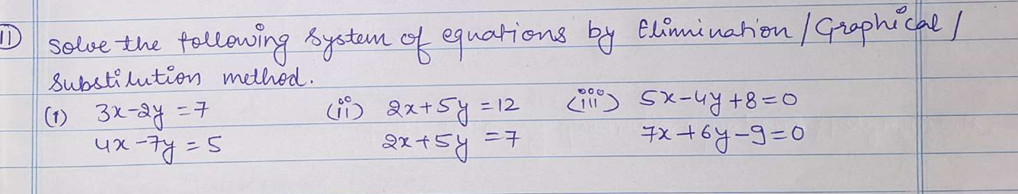 11) Solve the following system of equations by Elimination / Graphical /
Substitution method.
(i) 3x-2y = 7 (ii) 2x+5y = 12 (iii) 5x-4y+8=0
4x-7y = 5 2x+5y = 7 7x+6y-9=0